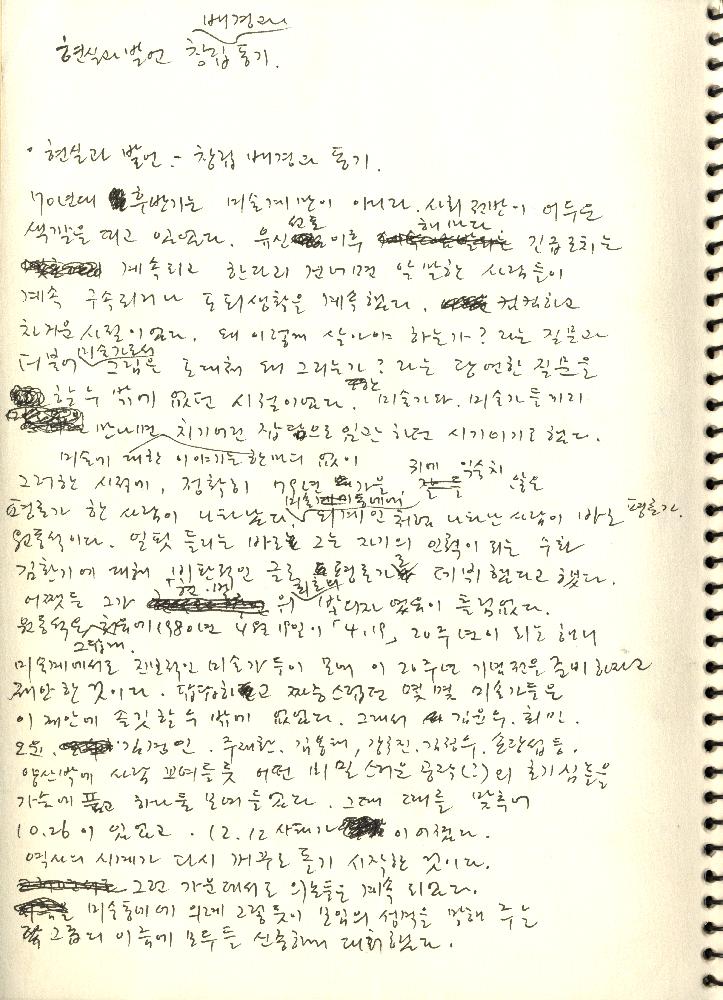 배경과
현실과 발언 창립 동기.
· 현실과 발언 - 창립 배경과 동기.
70년대 후반기는 미술계만이 아니라. 사회 전반이 어두운
색깔을 띠고 있었다. 유신 선포 이후 해마다 긴급조치는
계속되고 한다리 건너면 알 만한 사람들이
계속 구속되거나 도피생활을 계속했다. 컴컴하고
차거운 시절이었다. 왜 이렇게 살아야 하는가? 라는 질문과
더불어 미술가로서 그림은 도대체 왜 그리는가? 라는 당연한 질문을
할 수 밖에 없던 시절이었다. 또한 미술가다. 미술가들끼리
만나면 치기어린 잡담으로 일관하던 시기이기도 했다.
미술에 대한 이야기는 한마디 없이
그러한 시절에, 정확히 79년 가을 귀에 익숙치 않은
평론가 한 사람이 나타났다. 미술계 외계인처럼 나타난 사람이 바로 평론가.
원동석이다. 얼핏 들리는 바로는 그는 자기의 인척이 되는 수화
김환기에 대해 비판적인 글로 평론가로 데뷔했다고 했다.
어쨌든 그가 위 없음이 틀림없다.
원동석은 1980년 4월 19일이 「4.19」 20주년이 되는 해니
그 당시.
미술계에서도 진보적인 미술가들이 모여 이 20주년 기념전을 준비하자고
제안한 것이다. 답답하고 짜증스럽던 몇몇 미술가들은
이 제안에 솔깃할 수 밖에 없었다. 그래서 김윤수. 최민.
오윤. 김경인. 주재환. 김용태, 김정수. 손장섭 등.
양산박에 사람 꼬여들듯 어떤 비밀스러운 공작(?)의 호기심들을
가슴에 품고 하나둘 모여들었다. 그때 때를 맞추어
10.26이 있었고. 12.12 사태가 이어졌다.
역사의 시계가 다시 꺼꾸로 돌기 시작한 것이다.
그런 가운데서도 의논들은 계속 되었다.
미술동네에 의례 그렇듯이 모임의 성격을 말해 주는
그룹의 이름에 모두들 신중하게 대화했다.